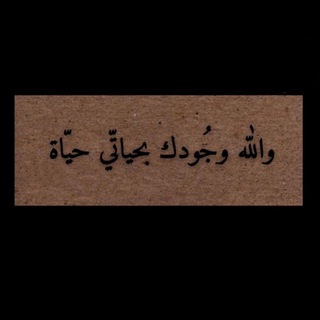 واللّٰه وجُودك بحياتّي حيّاة